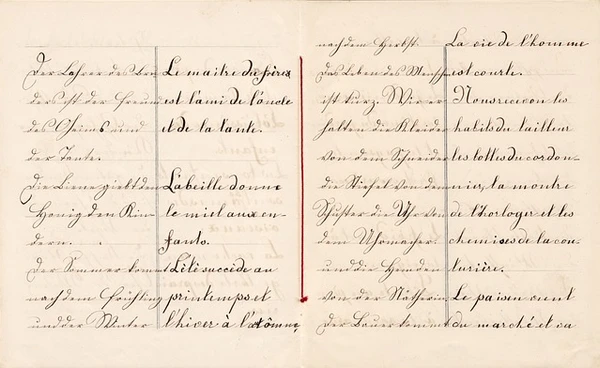 Der Lehrer des Bru
ders ist der Freund
des Oheims und
der Tante.
Die Biene giebt den
Honig den Kin-
dern.
Der Sommer kommt
nach dem Frühling
und der Winter
Le maitre du frères
est l'ami de l'oncle
et de la tante.
L'abeille donne
le miel aux en-
fants.
L'été succède au
printemps et
l'hiver à l'atômne
nach dem Herbst.
Das Leben des Menschen
ist kurz. Wir er
halten die Kleider
von dem Schneider
die Stiefel von dem
Schuster die Uhr von
dem Uhrmacher
und die Hemden
von der Nätherin.
Der Bauer kommt
La vie de l'homme
est courte.
Nous recevon les
habits du tailleur
les bottes du cordon-
nier, la montre
de l'horloger et les
chemises de la cou-
turière.
Le paisen vient
du marché et va